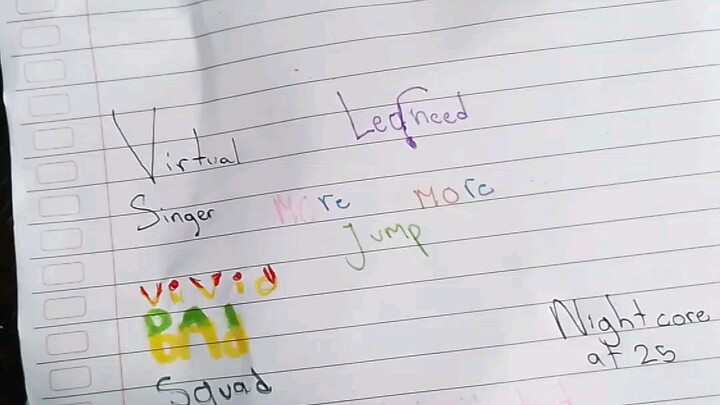 Virtual
Singer
Leo/need
MORE MORE
Jump
ViViD
BAD
Squad
Nightcore
at 25